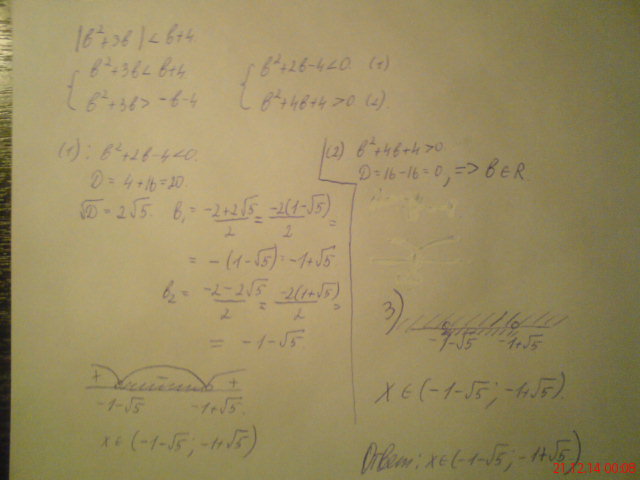 |b²+3b| < b+4.
{ b²+3b < b+4
{ b²+3b > -b-4
{ b²+2b-4<0. (1)
{ b²+4b+4>0. (2).
(1): b²+2b-4<0.
D = 4+16=20.
√D = 2√5. b₁ = (-2+2√5)/2 = (-2(1-√5))/2 =
= -(1-√5) = -1+√5.
b₂ = (-2-2√5)/2 = (-2(1+√5))/2 =
= -1-√5.
+ +
-1-√5 -1+√5.
x∈(-1-√5; -1+√5)
(2) b²+4b+4>0.
D=16-16=0, => b∈R.
3)
-1-√5 -1+√5
X∈(-1-√5; -1+√5).
Ответ: x∈(-1-√5; -1+√5)
21.12.14 00:08